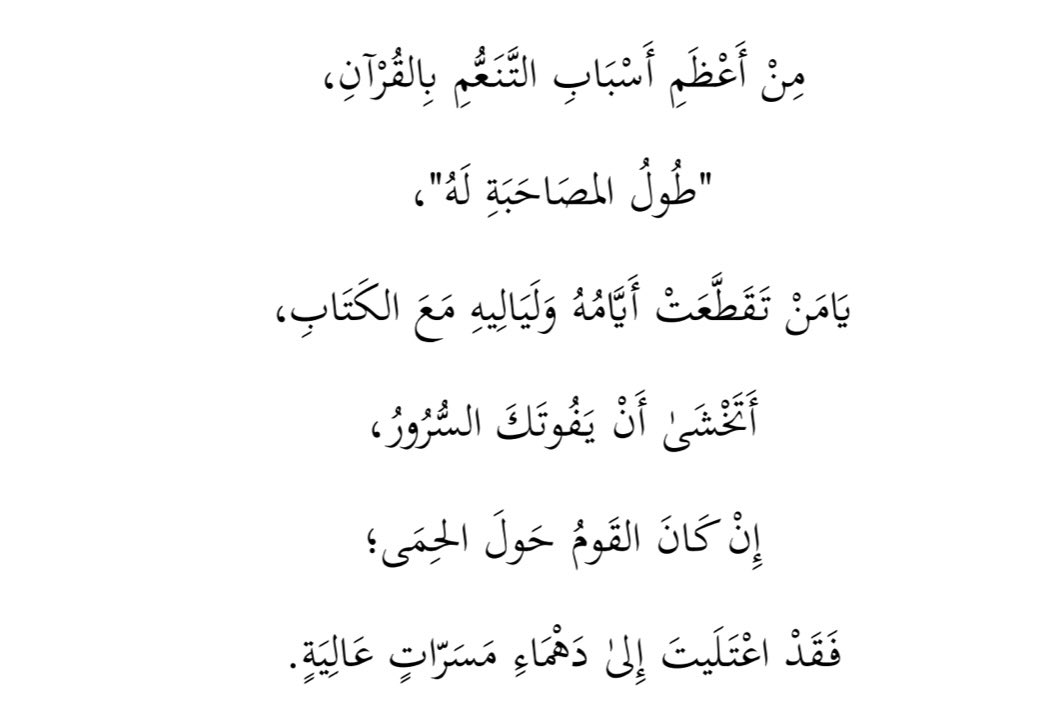 مِنْ أَعْظَمِ أَسْبَابِ التَّنَعُّمِ بِالقُرْآنِ،
"طُولُ المصَاحَبَةِ لَهُ"،
يَامَنْ تَقَطَّعَتْ أَيَّامُهُ وَلَيَالِيهِ مَعَ الكَتَابِ،
أَتَخْشَىٰ أَنْ يَفُوتَكَ السُّرُورُ،
إِنْ كَانَ القَومُ حَولَ الحِمَى؛
فَقَدْ اعْتَلَيتَ إِلىٰ دَهْمَاءِ مَسَرّاتٍ عَالِيَةٍ.